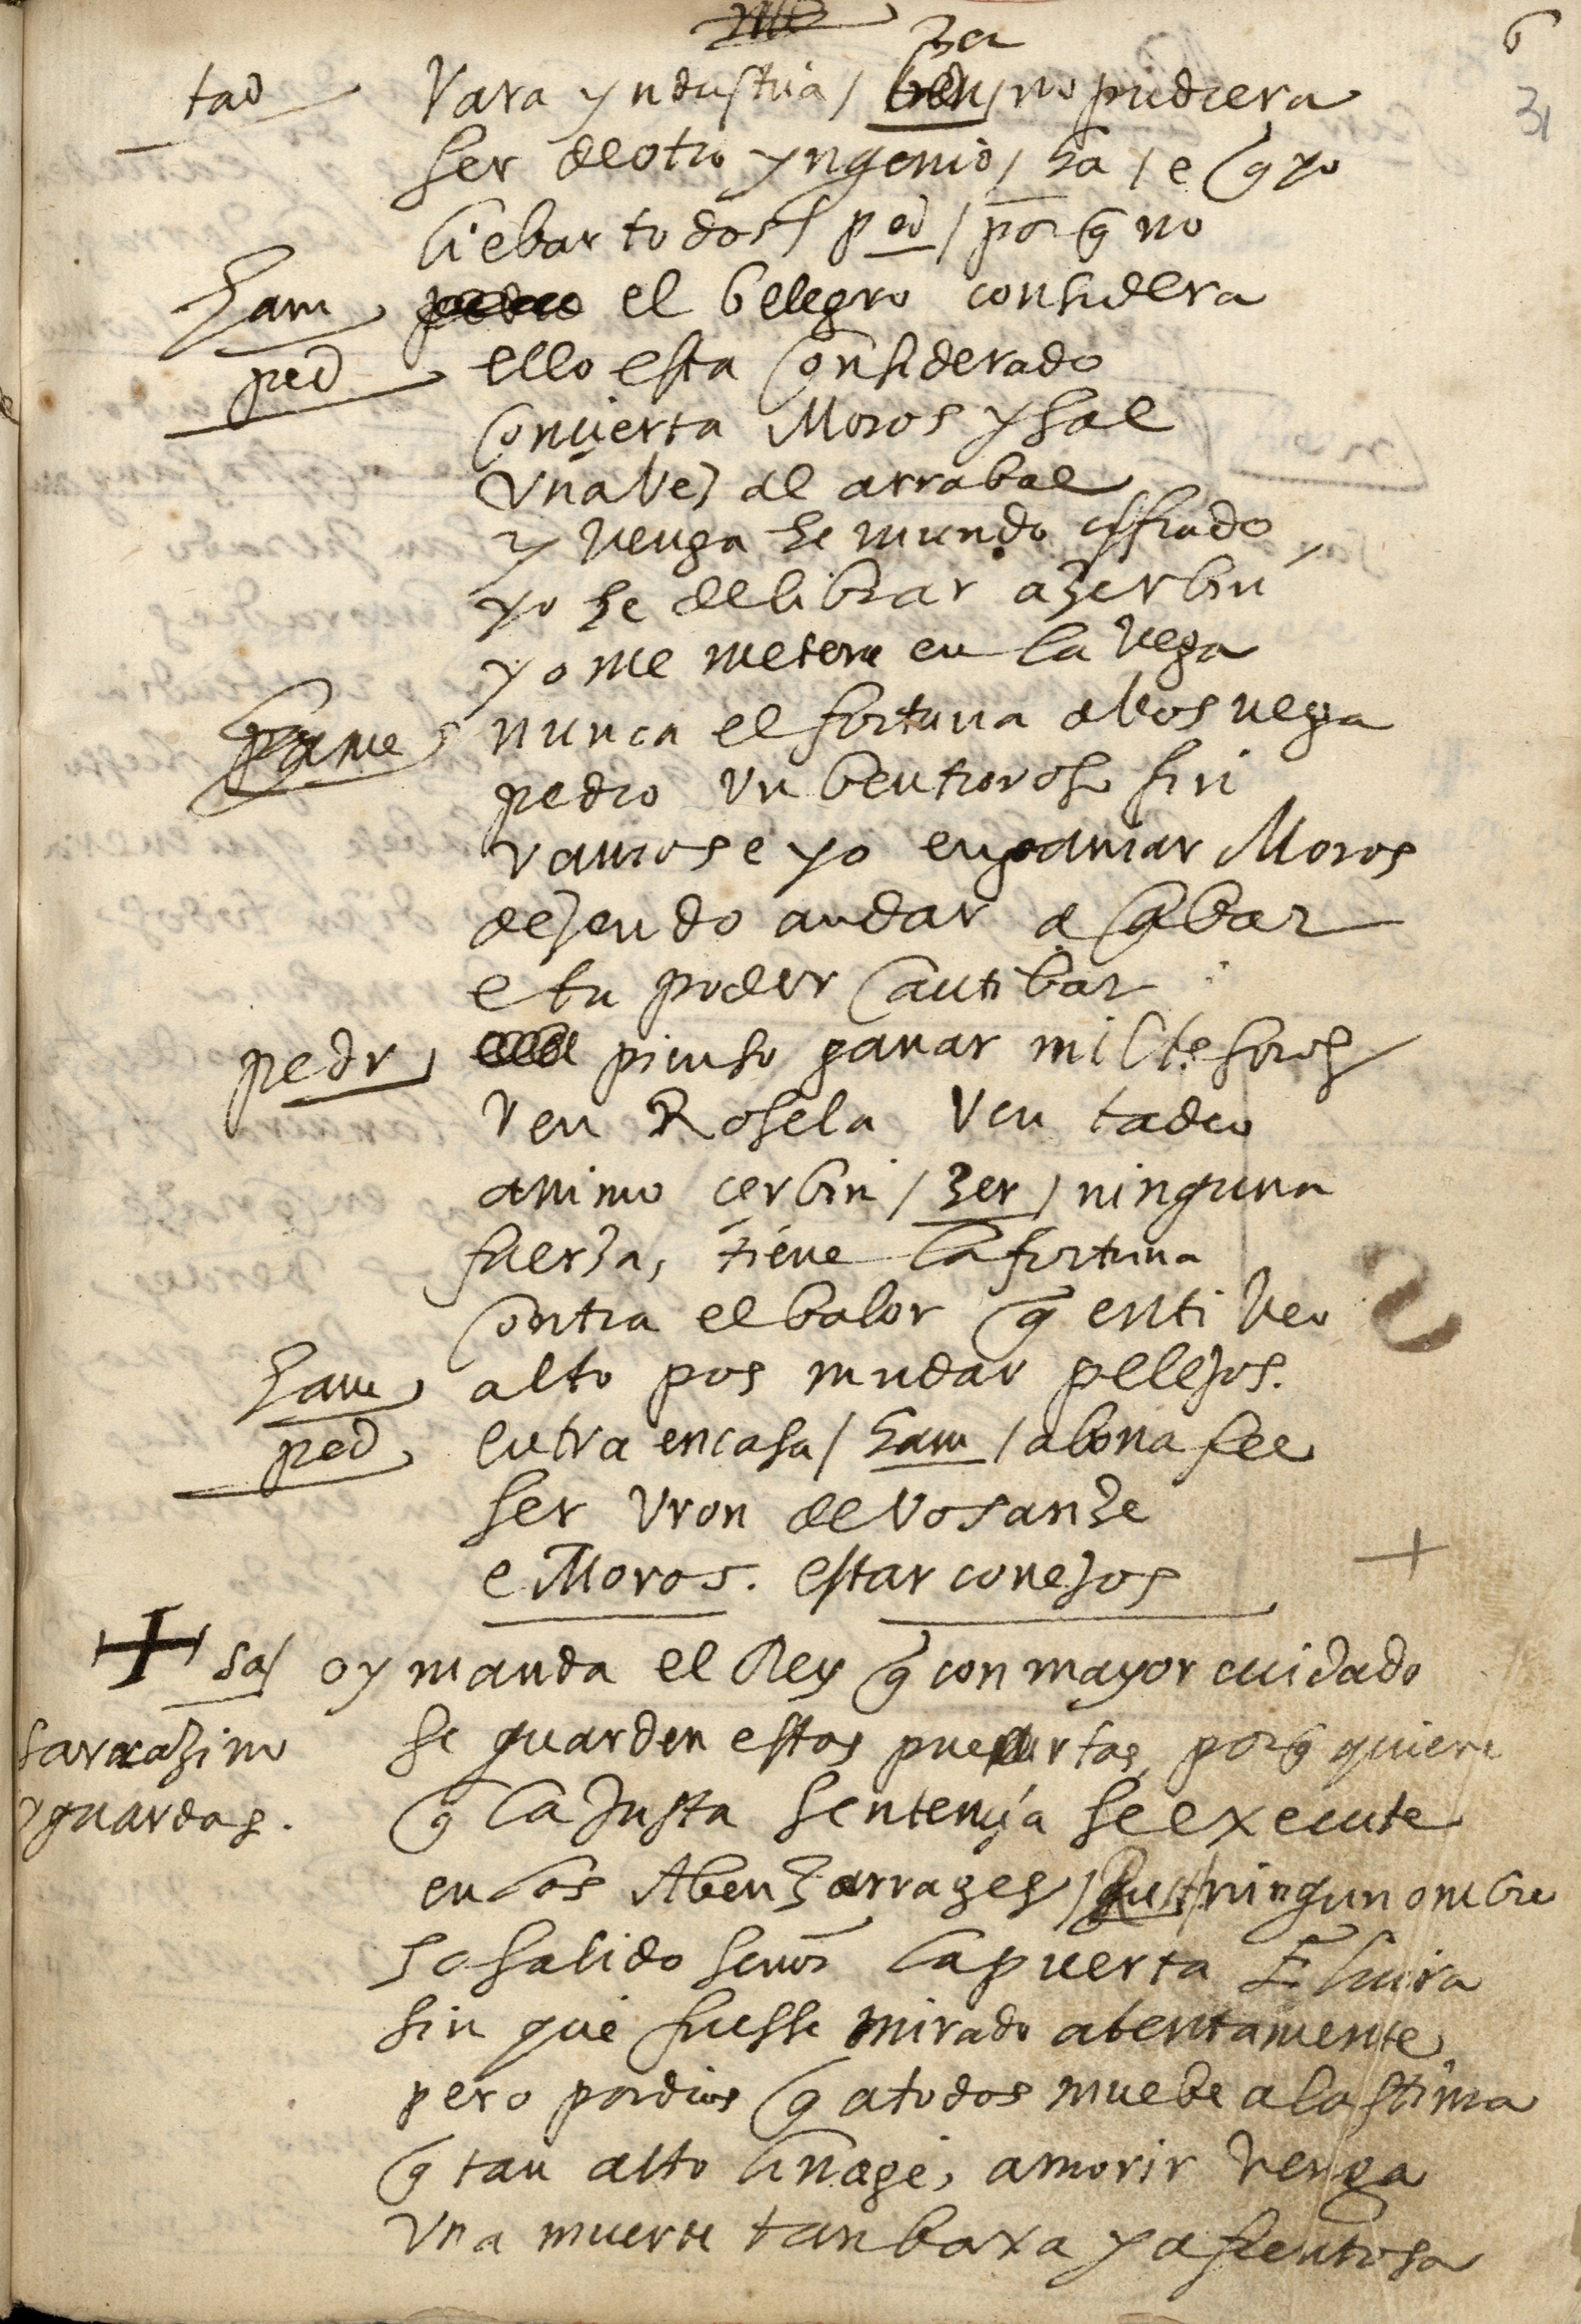 6
zer
31
tad Rara yndustria / no pudiera
ser de otro yngenio / ha / e q̃ yo
liebar todos / ped / por q̃ no
ham el belegro considera
ped ello esta considerado
convierta Moros y sal
vna vez al arrabal
y venga he mundo cifrado
yo he de librar a zerbin
yo me metere en la vega
hame nunca el fortuna a vos nega
pedro vn benturoso fin
vamos e yo enganiar Moros
dezendo andar a Cabar
e tu poder Cautibar
pedr pienso ganar mil tesoros
ven Rosela ven tadeo
animo çerbin / zer / ninguna
fuerza, tiene la fortuna
contra el balor q̃ en ti veo
ham alto pos mudar pelejos.
ped entra en casa / ham / a bona fee
ser vron de vosanze
e Moros. estar conejos
sa/ oy manda el Rey q̃ con mayor cuidado
sarrazino se guarden estas puertas, por q̃ quiere
y guardas. q̃ la Justa sentençia se execute
en los Abenzarrages / ningun onbre
ha salido señor la puerta Elvira
sin que fuesse mirado atentamente,
pero por dios q̃ a todos muebe a lastima
q̃ tan alto linage, a morir venga
vna muerte tan baxa y afrentosa